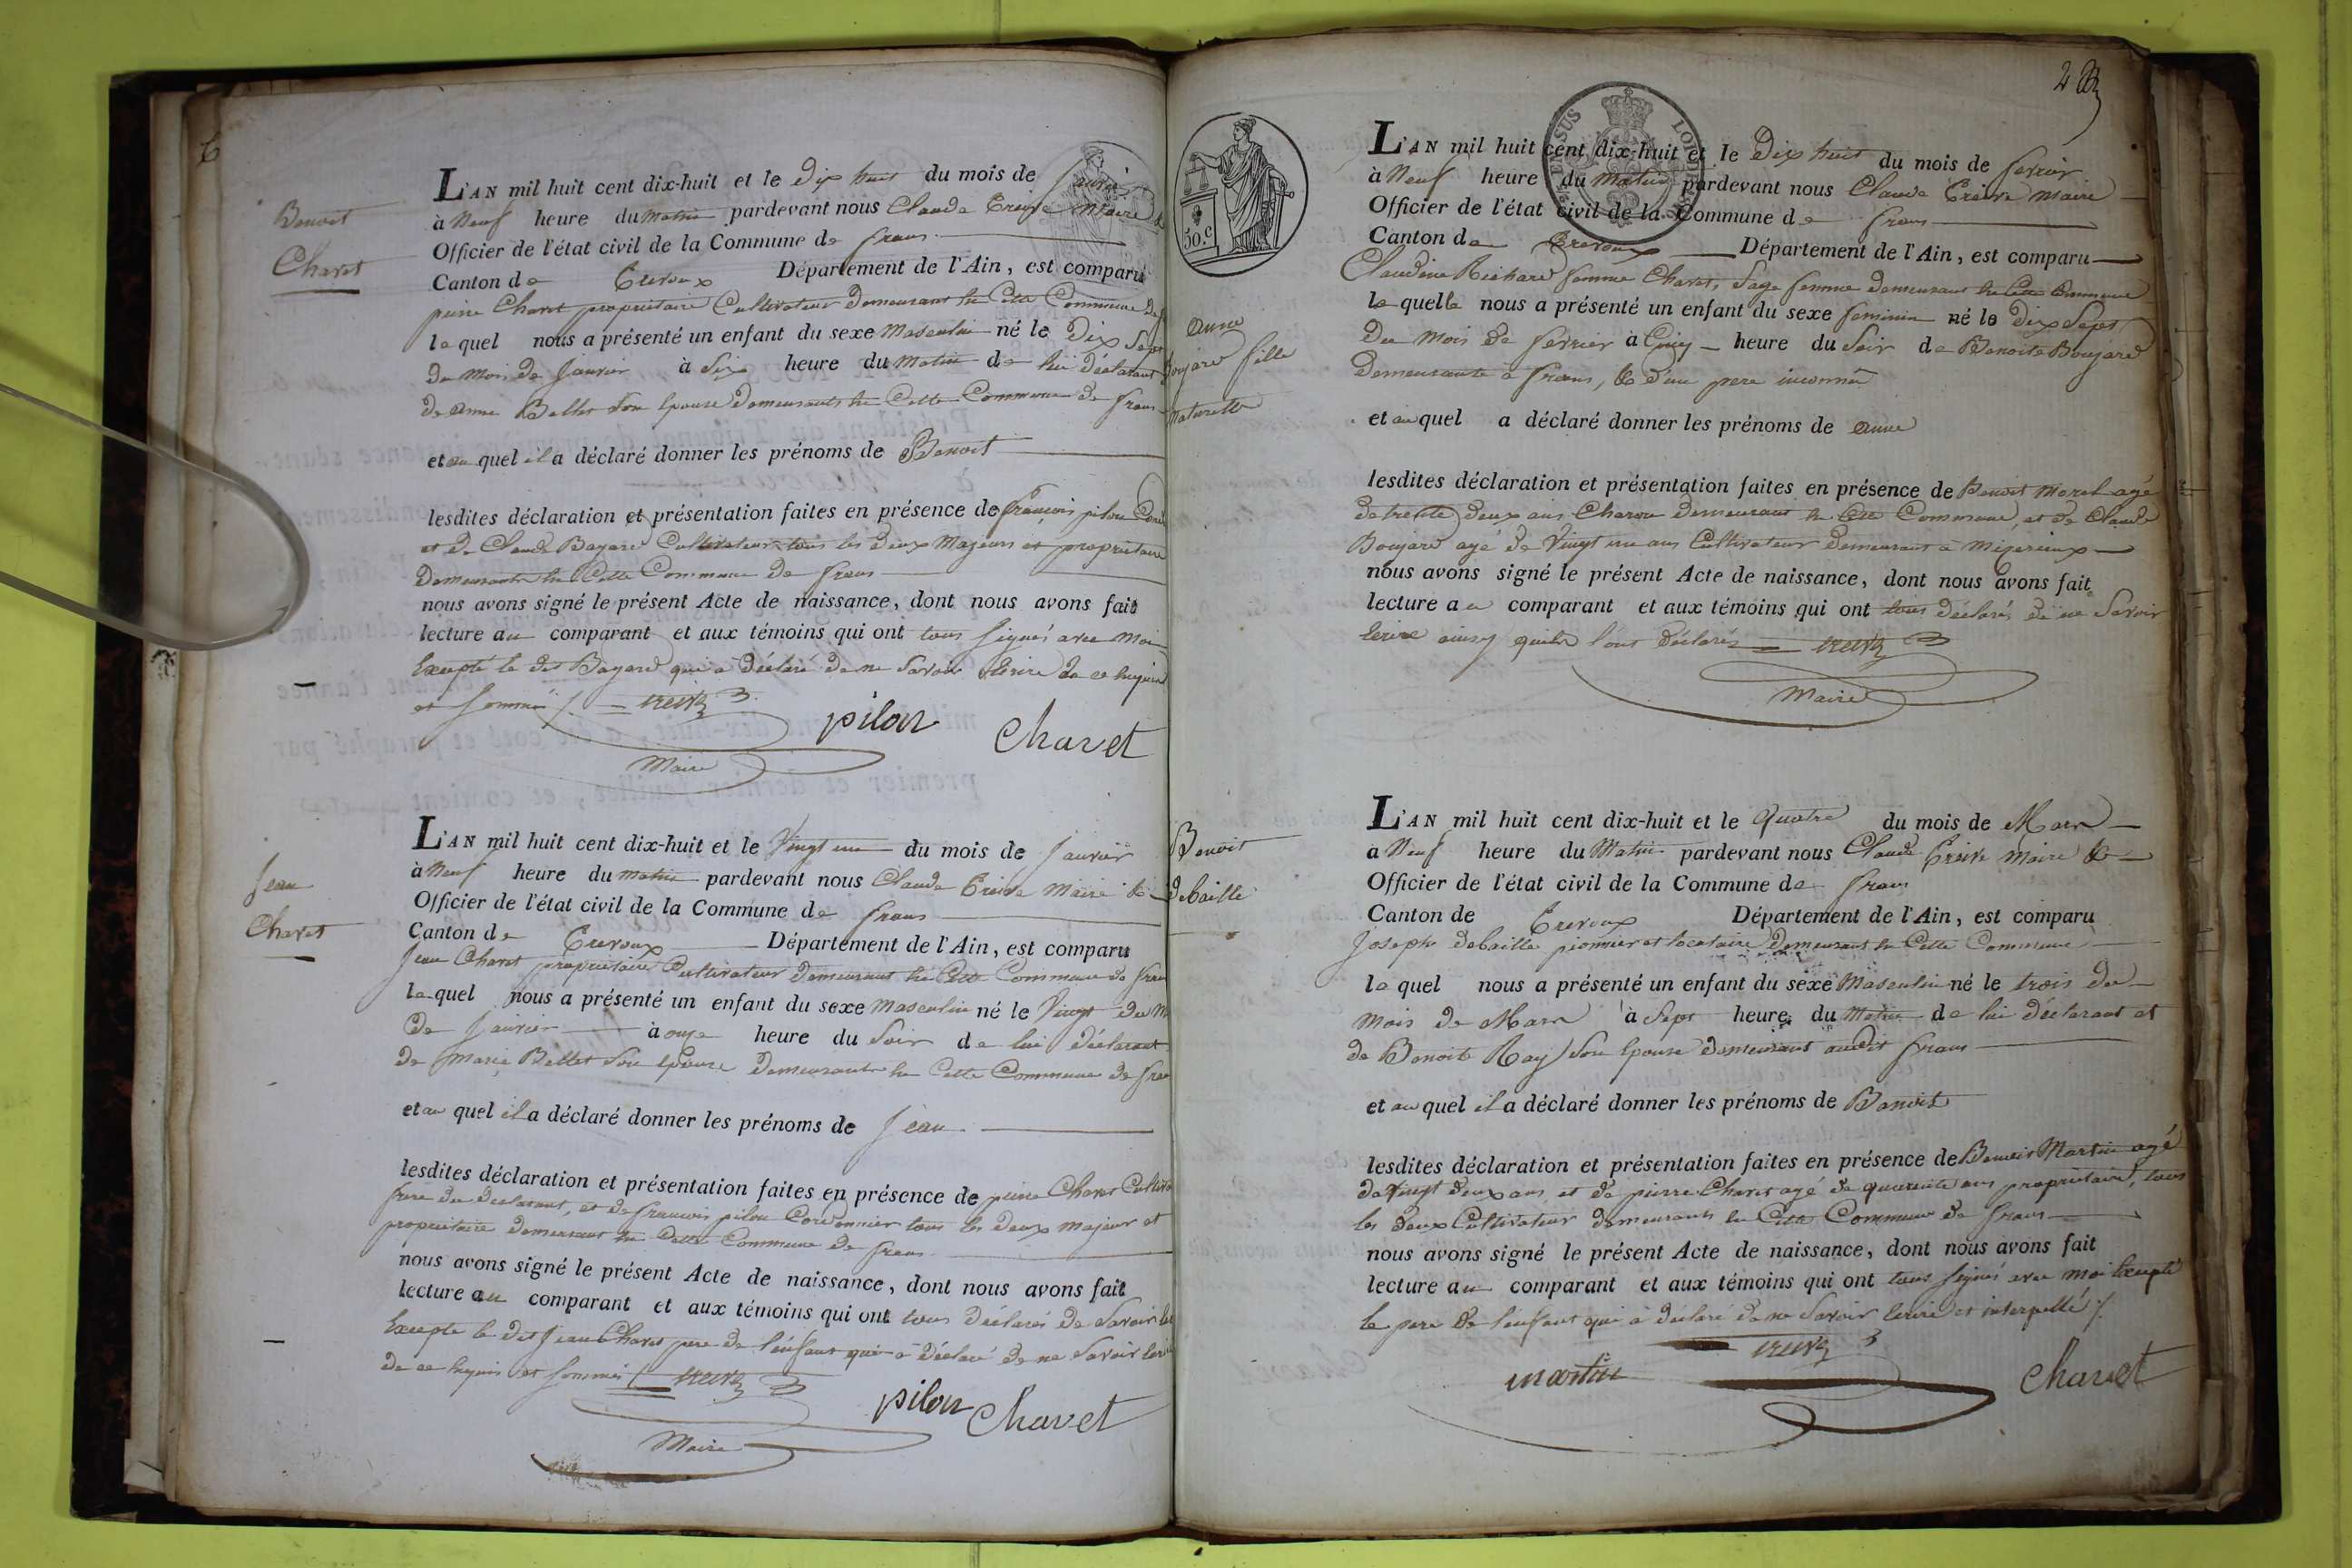 Benoit
Chavet
L'AN mil huit cent dix-huit et le dix huit du mois de Janvier
à Neuf heure du matin pardevant nous Claude Creive Maire
Officier de l'état civil de la Commune de frans
Canton de Trevoux Département de l'Ain, est comparu
pierre Chavet propriétaire Cultivateur demeurant en Cette Commune de
le quel nous a présenté un enfant du sexe Masculin né le Dix Sept
du mois de Janvier à Six heure du Matin de lui déclarant
de anne Bellet Son Epouse demeurants en Cette Commune de frans
et au quel il a déclaré donner les prénoms de Benoit
lesdites déclaration et présentation faites en présence de françois pilon
et de Claude Bayard Cultivateur tous les deux Majeurs et propriétaire
demeurants en Cette Commune de frans
nous avons signé le présent Acte de naissance, dont nous avons fait
lecture au comparant et aux témoins qui ont tous signés avec moi
Excepté le dit Bayard qui a déclaré de ne Savoir Ecrire de ce requis
et Sommé
pilon
Chavet
Maire
Jean
Chavet
L'AN mil huit cent dix-huit et le Vingt un du mois de Janvier
à Neuf heure du matin pardevant nous Claude Creive Maire &
Officier de l'état civil de la Commune de frans
Canton de Trevoux Département de l'Ain, est comparu
Jean Chavet propriétaire Cultivateur demeurant en Cette Commune de frans
le quel nous a présenté un enfant du sexe Masculin né le Vingt du
de Janvier à onze heure du Soir de lui déclarant
de Marie Bellet Son Epouse demeurants en Cette Commune de
et au quel il a déclaré donner les prénoms de Jean
lesdites déclaration et présentation faites en présence de pierre Chavet
frere du déclarant, et de francois pilon Cordonnier tous les deux majeur et
propriétaire demeurant en Cette Commune de frans
nous avons signé le présent Acte de naissance, dont nous avons fait
lecture au comparant et aux témoins qui ont tous déclarés de Savoir
Excepte le dit Jean Chavet pere de l'enfant qui a déclaré de ne Savoir
de ce requis et Sommé
pilon Chavet
Maire
50.c
anne
Boujard fille
naturelle
2
L'AN mil huit cent dix-huit et le Dix huit du mois de fevrier
à Neuf heure du Matin pardevant nous Claude Creive Maire
Officier de l'état civil de la Commune de frans
Canton de Trevoux Département de l'Ain, est comparu
Claudine Richard femme Chavet, Sage femme demeurant en Cette Commune
la quelle nous a présenté un enfant du sexe feminin né le Dix Sept
du Mois de fevrier à Cinq heure du Soir de Benoite Boujard
Demeurante a frans, & d'un pere inconnu
et au quel a déclaré donner les prénoms de anne
lesdites déclaration et présentation faites en présence de Benoit Morel agé
de trente deux ans Charon demeurant en Cette Commune, et de Claude
Boujard agé de Vingt un ans Cultivateur demeurant à Mizerieux
nous avons signé le présent Acte de naissance, dont nous avons fait
lecture a comparant et aux témoins qui ont tous déclarés de ne Savoir
Ecrire ainsy quils l'ont déclarés
Maire
Benoit
debaille
L'AN mil huit cent dix-huit et le quatre du mois de Mars
à Neuf heure du Matin pardevant nous Claude Creive Maire &
Officier de l'état civil de la Commune de frans
Canton de Trevoux Département de l'Ain, est comparu
Joseph debaille pionnier et locataire demeurant en Cette Commune
le quel nous a présenté un enfant du sexe Masculin né le trois du
Mois de Mars à Sept heure du Matin de lui déclarant et
de Benoite Ray Son Epouse demeurant audit frans
et au quel il a déclaré donner les prénoms de Benoit
lesdites déclaration et présentation faites en présence de Benoit Martin agé
de Vingt deux ans et de pierre Chavet agé de quarante ans propriétaire, tous
les deux Cultivateur demeurants en Cette Commune de frans
nous avons signé le présent Acte de naissance, dont nous avons fait
lecture au comparant et aux témoins qui ont tous signés avec moi Excepté
le pere de l'enfant qui a déclaré de ne Savoir Ecrire et interpellé
martin
Chavet